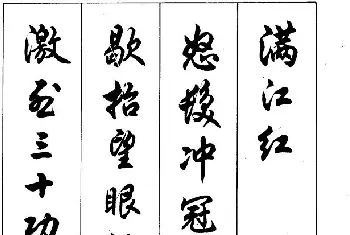 满江红
怒髮冲冠
歇抬望眼
激烈三十功